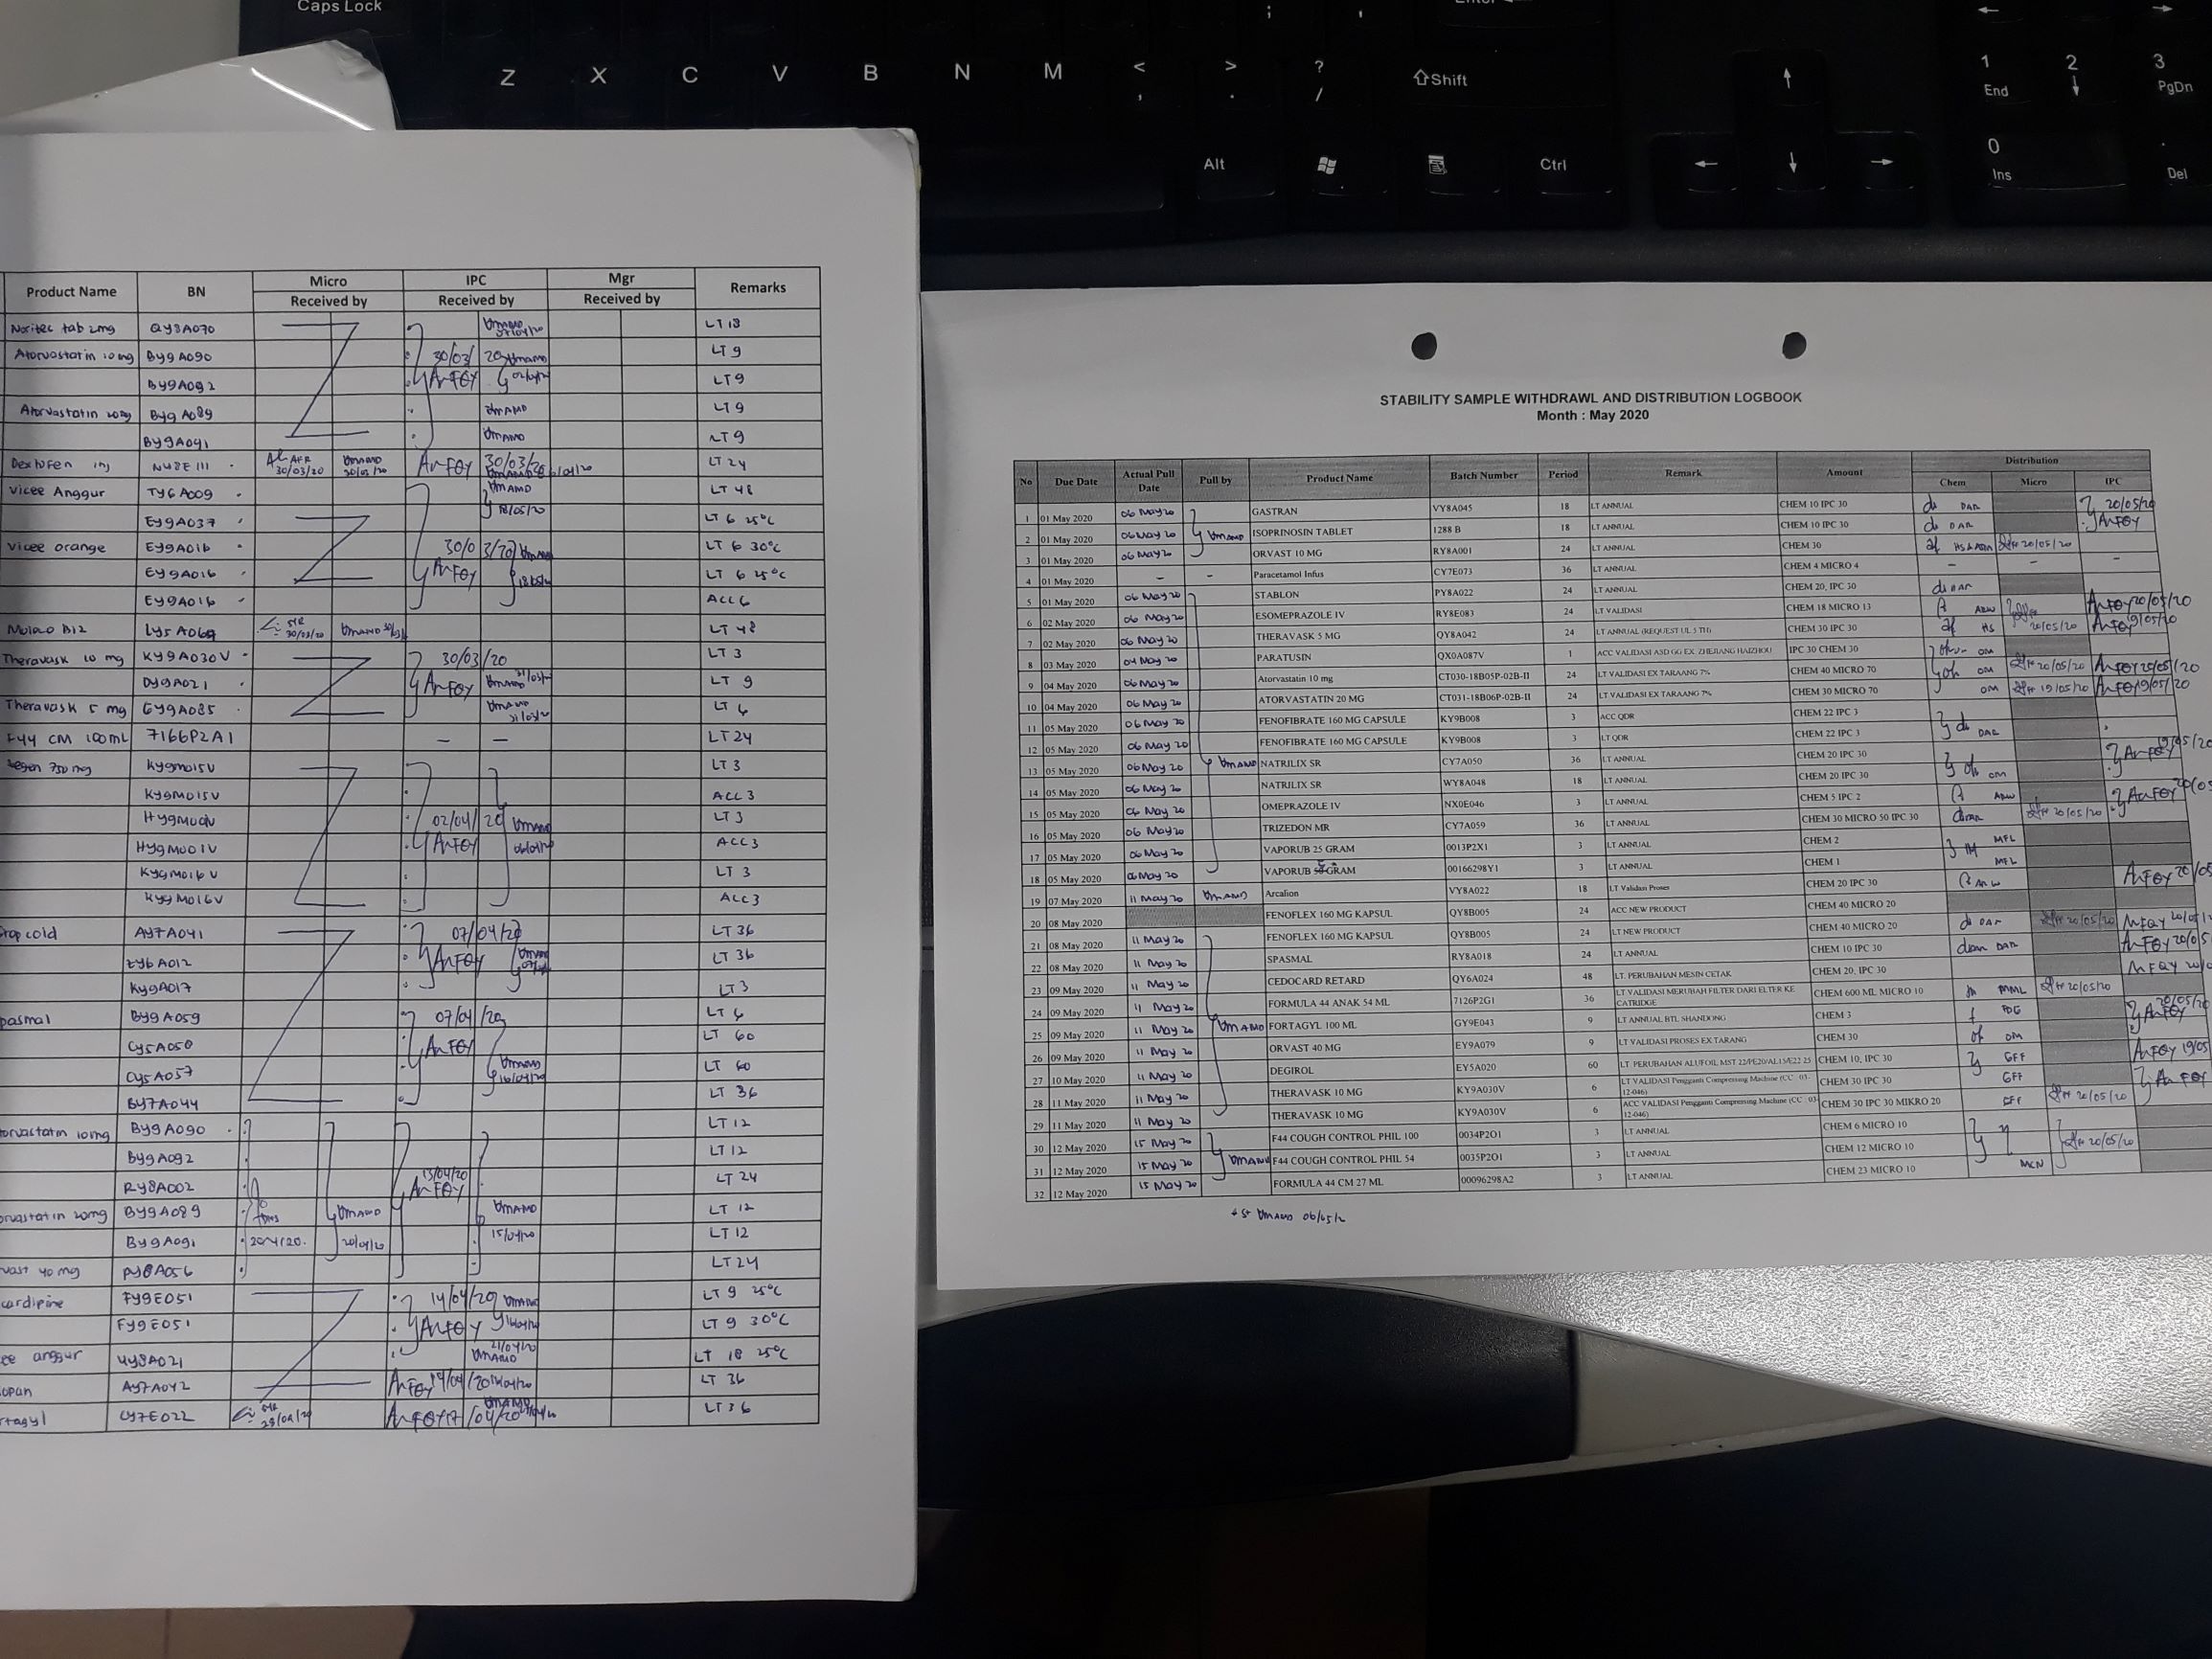 Caps Lock
Z X C V B N M < , > . ? / Shift
Alt Ctrl
1 End 2 3 PgDn
0 Ins . Del
Product Name BN Micro IPC Mgr Remarks
Received by Received by Received by
Noritec tab 2mg QY8A070 LT 18
Atorvastatin 10 mg BY9A090 30/03/20 LT 9
BY9A092 AnFGY LT 9
Atorvastatin 20mg BY9A089 LT 9
BY9A091 LT 9
30/03/20 AnFGY 30/03/20 LT 24
Vicee Anggur TY6A009 LT 48
EY9A037 LT 6 25°C
Vicee orange EY9A016 30/03/20 LT 6 30°C
EY9A016 AnFGY LT 6 25°C
EY9A016 ACC 6
30/03/20 LT 48
Theravask 10 mg KY9A030V 30/03/20 LT 3
DY9A021 AnFGY LT 9
Theravask 5 mg EY9A085 LT 6
F44 CM 100mL 7166P2A1 - - LT 24
750 mg KY9M015V LT 3
KY9M015V ACC 3
02/04/20 LT 3
HY9M001V AnFGY ACC 3
KY9M016V LT 3
KY9M016V ACC 3
cold AY7A041 07/04/20 LT 36
EY6A012 AnFGY LT 36
KY9A017 LT 3
pasmal BY9A059 07/04/20 LT 6
CY5A058 AnFGY LT 60
CY5A057 LT 60
BY7A044 LT 36
orvastatin 10mg BY9A090 LT 12
BY9A092 LT 12
RY8A002 13/04/20 AnFGY LT 24
orvastatin 20mg BY9A089 LT 12
BY9A091 20/4/20. 20/04/20 15/04/20 LT 12
40 mg PY8A056 LT 24
cardipine FY9E051 14/04/20 LT 9 25°C
FY9E051 AnFGY LT 9 30°C
ee anggur 21/04/20 LT 18 25°C
opan AY7A042 AnFGY 14/04/20 LT 36
tagyl CY7E022 AnFGY 17/04/20 LT 36
STABILITY SAMPLE WITHDRAWL AND DISTRIBUTION LOGBOOK
Month : May 2020
No Due Date Actual Pull Date Pull by Product Name Batch Number Period Remark Amount Distribution
Chem Micro IPC
1 01 May 2020 06 May 20 GASTRAN VY8A045 18 LT ANNUAL CHEM 10 IPC 30 DAR 20/05/20
2 01 May 2020 06 May 20 ISOPRINOSIN TABLET 1288 B 18 LT ANNUAL CHEM 10 IPC 30 DAR AnFGY
3 01 May 2020 06 May 20 ORVAST 10 MG RY8A001 24 LT ANNUAL CHEM 30 20/05/20
4 01 May 2020 - - Paracetamol Infus CY7E073 36 LT ANNUAL CHEM 4 MICRO 4 - - -
5 01 May 2020 06 May 20 STABLON PY8A022 24 LT ANNUAL CHEM 20, IPC 30 DAR
6 02 May 2020 06 May 20 ESOMEPRAZOLE IV RY8E083 24 LT VALIDASI CHEM 18 MICRO 13 AnFGY 20/05/20
7 02 May 2020 06 May 20 THERAVASK 5 MG QY8A042 24 LT ANNUAL (REQUEST UL 5 TH) CHEM 30 IPC 30 HS 20/05/20 AnFGY 19/05/20
8 03 May 2020 04 May 20 PARATUSIN QX0A087V 1 ACC VALIDASI A3D GG EX. ZHEJIANG HAIZHOU IPC 30 CHEM 30 OM
9 04 May 2020 06 May 20 Atorvastatin 10 mg CT030-18B05P-02B-II 24 LT VALIDASI EX TARAANG 7% CHEM 40 MICRO 70 OM 20/05/20 AnFGY 20/05/20
10 04 May 2020 06 May 20 ATORVASTATIN 20 MG CT031-18B06P-02B-II 24 LT VALIDASI EX TARAANG 7% CHEM 30 MICRO 70 OM 19/05/20 AnFGY 19/05/20
11 05 May 2020 06 May 20 FENOFIBRATE 160 MG CAPSULE KY9B008 3 ACC QDR CHEM 22 IPC 3
12 05 May 2020 06 May 20 FENOFIBRATE 160 MG CAPSULE KY9B008 3 LT QDR CHEM 22 IPC 3 DAR
13 05 May 2020 06 May 20 NATRILIX SR CY7A050 36 LT ANNUAL CHEM 20 IPC 30 AnFGY 19/05/20
14 05 May 2020 06 May 20 NATRILIX SR WY8A048 18 LT ANNUAL CHEM 20 IPC 30 OM
15 05 May 2020 06 May 20 OMEPRAZOLE IV NX0E046 3 LT ANNUAL CHEM 5 IPC 2 AnFGY
16 05 May 2020 06 May 20 TRIZEDON MR CY7A059 36 LT ANNUAL CHEM 30 MICRO 50 IPC 30 20/05/20
17 05 May 2020 06 May 20 VAPORUB 25 GRAM 0013P2X1 3 LT ANNUAL CHEM 2 MFL
18 05 May 2020 06 May 20 VAPORUB GRAM 00166298Y1 3 LT ANNUAL CHEM 1 MFL
19 07 May 2020 11 May 20 Arcalion VY8A022 18 LT Validasi Proses CHEM 20 IPC 30 AnFGY
20 08 May 2020 FENOFLEX 160 MG KAPSUL QY8B005 24 ACC NEW PRODUCT CHEM 40 MICRO 20
21 08 May 2020 11 May 20 FENOFLEX 160 MG KAPSUL QY8B005 24 LT NEW PRODUCT CHEM 40 MICRO 20 DAR 20/05/20 AnFGY
22 08 May 2020 11 May 20 SPASMAL RY8A018 24 LT ANNUAL CHEM 10 IPC 30 DAR AnFGY
23 09 May 2020 11 May 20 CEDOCARD RETARD QY6A024 48 LT. PERUBAHAN MESIN CETAK CHEM 20, IPC 30 AnFGY
24 09 May 2020 11 May 20 FORMULA 44 ANAK 54 ML 7126P2G1 36 LT VALIDASI MERUBAH FILTER DARI ELTER KE CATRIDGE CHEM 600 ML MICRO 10 MML 20/05/20
25 09 May 2020 11 May 20 FORTAGYL 100 ML GY9E043 9 LT ANNUAL BTL SHANDONG CHEM 3 PDG 20/05/20 AnFGY
26 09 May 2020 11 May 20 ORVAST 40 MG EY9A079 9 LT VALIDASI PROSES EX TARANG CHEM 30 OM
27 10 May 2020 11 May 20 DEGIROL EY5A020 60 LT PERUBAHAN ALUFOIL MST 22/PE20/AL15/E22 25 CHEM 10, IPC 30 GFF AnFGY 19/05
28 11 May 2020 11 May 20 THERAVASK 10 MG KY9A030V 6 LT VALIDASI Pengganti Compressing Machine (CC : 03-12-046) CHEM 30 IPC 30 GFF AnFGY
29 11 May 2020 11 May 20 THERAVASK 10 MG KY9A030V 6 ACC VALIDASI Pengganti Compressing Machine (CC : 03-12-046) CHEM 30 IPC 30 MIKRO 20 GFF 20/05/20
30 12 May 2020 15 May 20 F44 COUGH CONTROL PHIL 100 0034P2O1 3 LT ANNUAL CHEM 6 MICRO 10
31 12 May 2020 15 May 20 F44 COUGH CONTROL PHIL 54 0035P2O1 3 LT ANNUAL CHEM 12 MICRO 10 20/05/20
32 12 May 2020 15 May 20 FORMULA 44 CM 27 ML 00096298A2 3 LT ANNUAL CHEM 23 MICRO 10 MCN